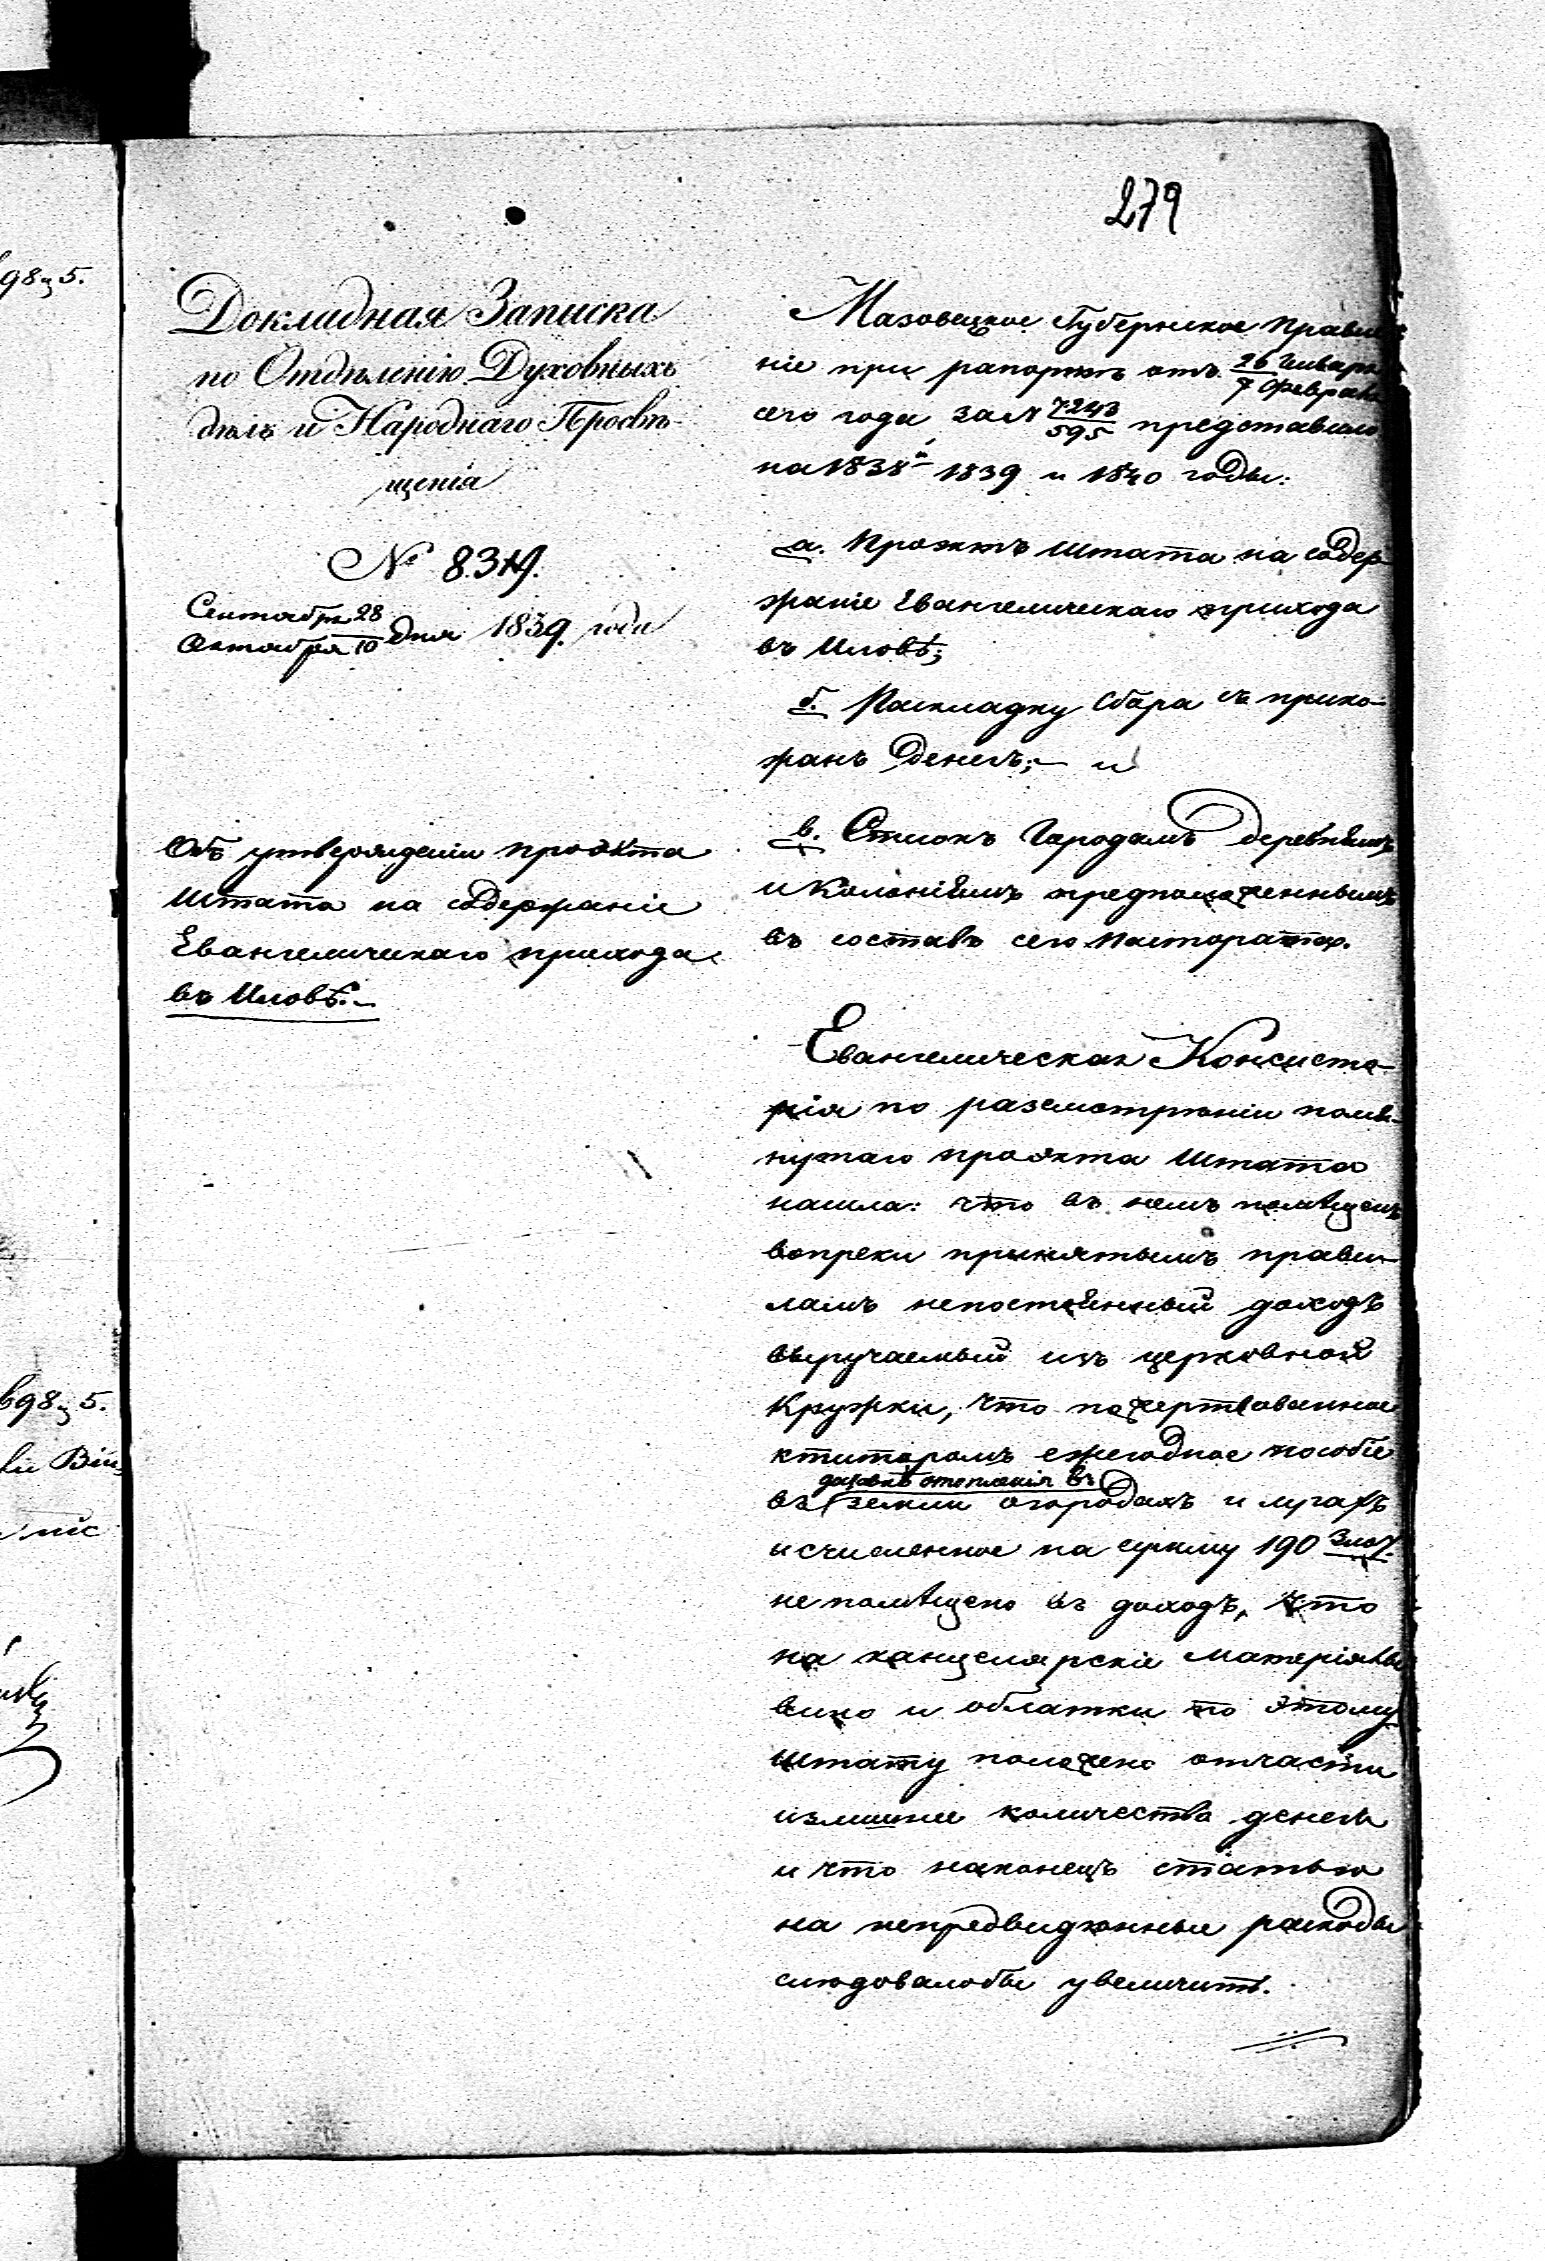 279
98 5.
Докладная Записка
по Отдѣленію Духовныхъ
дѣлъ и Народнаго Просвѣ-
щенія
№ 8319.
Сентября 28
Октября 10 дня 1839 года
Объ утвержденіи проэкта
Штата на содержаніе
Евангелическаго прихода
въ Иловѣ.
Мазовецкое Губернское Правле-
ніе при рапортѣ отъ 26 Января
7 Февраля
сего года за № 7243
595 представило
на 1838, 1839 и 1840 годы:
а. Проэктъ Штата на содер-
жаніе Евангелическаго прихода
въ Иловѣ;
б. Раскладку сбора съ прихо-
жанъ денегъ; и
в. Списокъ Городамъ деревнямъ
и Колоніямъ предположеннымъ
въ составъ сего Пастората.
Евангелическая Консисто-
рія по разсмотрѣніи помя-
нутаго проэкта Штата
нашла: что въ немъ помѣщенъ
вопреки принятымъ прави-
ламъ непостоянный доходъ
выручаемый изъ церковной
Кружки, что пожертвованное
ктиторомъ ежегодное пособіе
отопленія въ
въ земли огородахъ и лугахъ
исчисленное на сумму 190 Злот.
не помѣщено въ доходъ, что
на канцелярскіе матеріялы
вино и облатки по этому
штату положено отчасти
излишнее количество денегъ
и что наконецъ статью
на непредвидѣнные расходы
слѣдовалобы увеличить.
698 5.